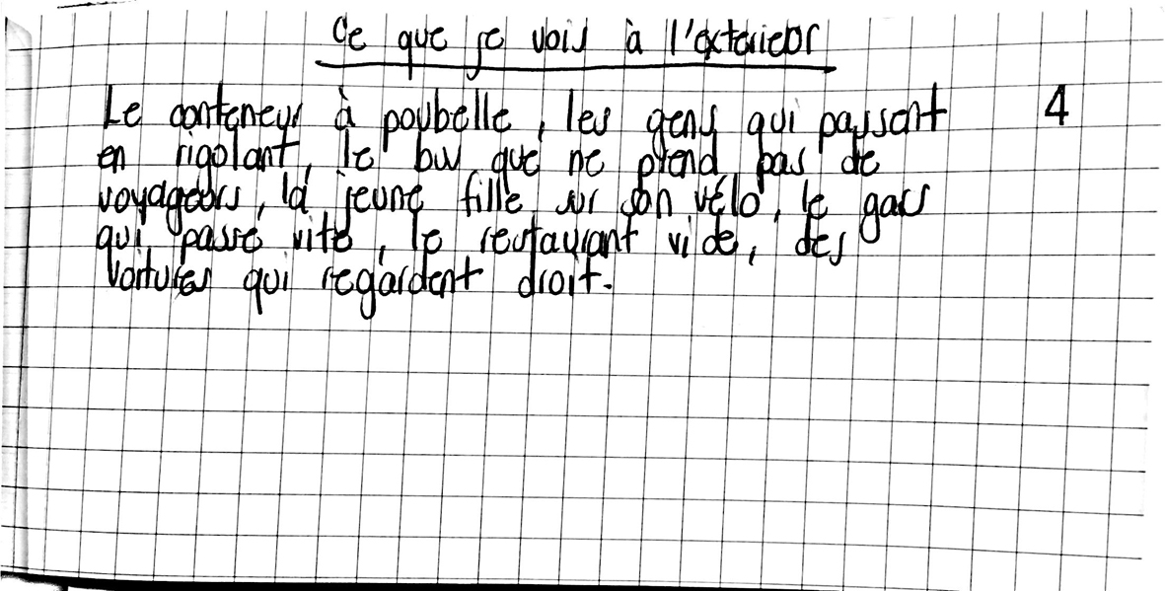 Ce que je vois à l'exterieur
Le conteneur à poubelle, les gens qui passent 4
en rigolant, le bus que ne prend pas de
voyageurs, la jeune fille sur son vélo, le gars
qui passe vite, le restaurant vide, des
voitures qui regardent droit.